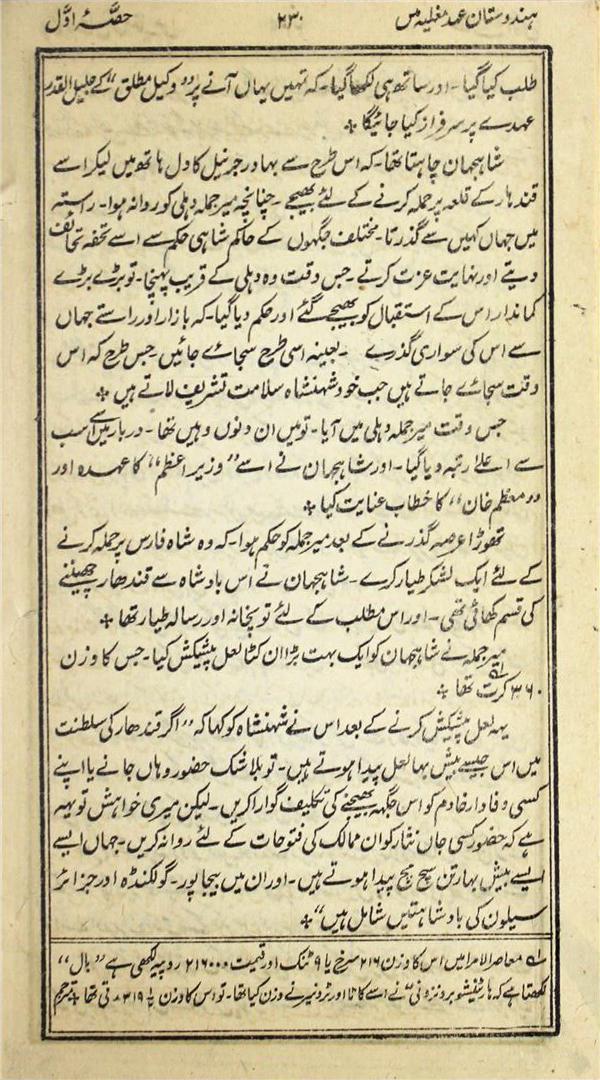 ہندوستان عہد مغلیہ میں
۲۳۰
حصۂ اوّل
طلب کیا گیا۔ اور ساتھ ہی لکھا گیا۔ کہ تمہیں یہاں آنے پر ”وکیل مطلق“ کے جلیل القدر
عہدے پر سرفراز کیا جائیگا ❖
شاہجہان چاہتا تھا۔ کہ اس طرح سے بہادر جرنیل کا دل ہاتھ میں لیکر اسے
قندہار کے قلعہ پر حملہ کرنے کے لئے بھیجے۔ چنانچہ میر جملہ دہلی کو روانہ ہوا۔ راستہ
میں جہاں کہیں سے گذرتا۔ مختلف جگہوں کے حاکم شاہی حکم سے اسے تحفہ تحائف
دیتے اور نہایت عزت کرتے۔ جس وقت وہ دہلی کے قریب پہنچا۔ تو بڑے بڑے
کماندار اس کے استقبال کو بھیجے گئے اور حکم دیا گیا۔ کہ بازار اور راستے جہاں
سے اس کی سواری گذرے ۔ بعینہ اسی طرح سجائے جائیں۔ جس طرح کہ اس
وقت سجائے جاتے ہیں جب خود شہنشاہ سلامت تشریف لاتے ہیں ❖
جس وقت میر جملہ دہلی میں آیا۔ تو میں ان دنوں وہیں تھا۔ دربار میں اسے سب
سے اعلےٰ رتبہ دیا گیا۔ اور شاہجہان نے اسے ”وزیر اعظم“ کا عہدہ اور
”معظم خان“ کا خطاب عنایت کیا ❖
تھوڑا عرصہ گذرنے کے بعد میر جملہ کو حکم ہوا۔ کہ وہ شاہ فارس پر حملہ کرنے
کے لئے ایک لشکر طیار کرے۔ شاہجہان نے اس بادشاہ سے قندھار چھیننے
کی قسم کھائی تھی۔ اور اس مطلب کے لئے توپخانہ اور رسالہ طیار تھا ❖
میر جملہ نے شاہجہان کو ایک بہت بڑا ان کٹا لعل پیشکش کیا۔ جس کا وزن
۳۶۰ کرت تھا ❖
یہ لعل پیشکش کرنے کے بعد اس نے شہنشاہ کو کہا کہ ”اگر قندھار کی سلطنت
میں اس جیسے بیش بہا لعل پیدا ہوتے ہیں۔ تو بلاشک حضور وہاں جانے یا اپنے
کسی وفادار خادم کو اس جگہ بھیجنے کی تکلیف گوارا کریں۔ لیکن میری خواہش تو یہ
ہے کہ حضور کسی جاں نثار کو ان ممالک کی فتوحات کے لئے روانہ کریں۔ جہاں ایسے
ایسے بیش بہا رتن سچ مچ پیدا ہوتے ہیں۔ اور ان میں بیجاپور۔ گولکنڈہ اور جزائر
سیلون کی بادشاہتیں شامل ہیں“ ❖
لہ معاصر الامرا میں اس کا وزن ۲۱۶ سرخ یا ۹ ٹنک اور قیمت ۲۱۶۰۰۰ روپیہ لکھی ہے ”بال“
لکھتا ہے کہ نے اسے کاٹا اور ٹرونیر نے وزن کیا تھا۔ تو اس کا وزن رتی تھا ❖ مترجم